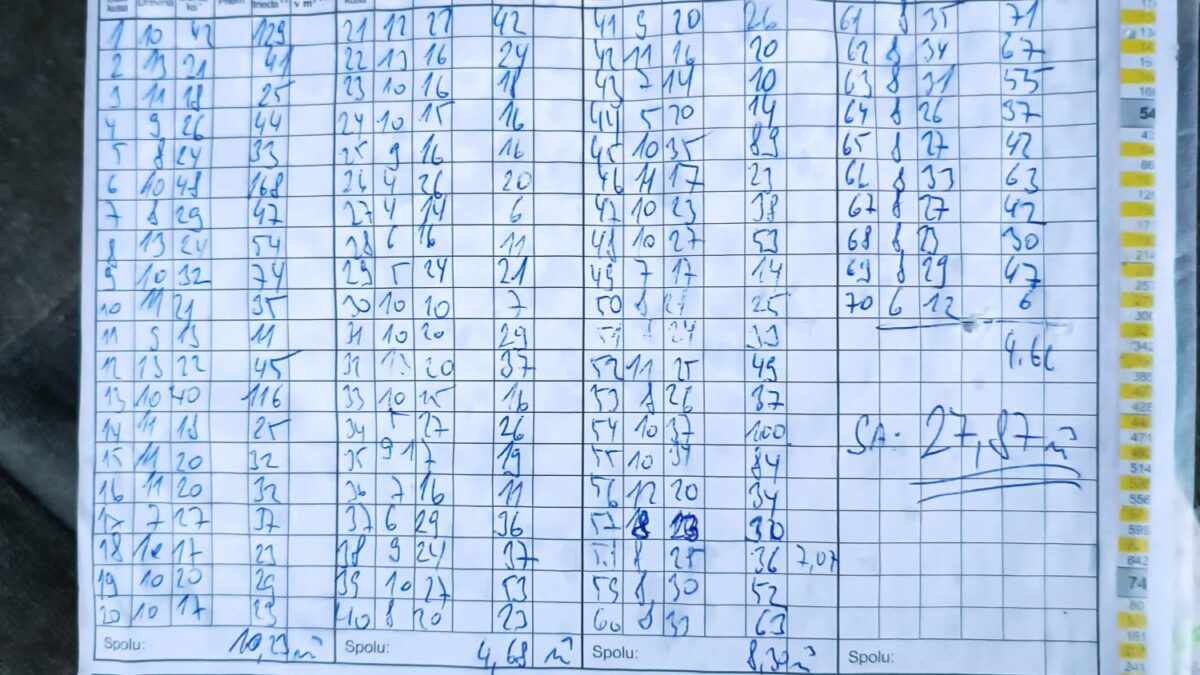 1 10 42 129 21 12 27 42 41 9 20 26 61 8 35 71
2 13 21 41 22 13 16 24 42 11 16 20 62 8 34 67
3 11 18 25 23 10 16 18 43 7 14 10 63 8 31 55
4 9 26 44 24 10 15 16 44 5 20 14 64 8 26 37
5 8 24 33 25 9 16 16 45 10 35 89 65 8 27 42
6 10 48 168 26 4 26 20 46 11 17 23 66 8 33 63
7 8 29 47 27 4 14 6 47 10 23 38 67 8 27 42
8 13 24 54 28 6 16 11 48 10 27 53 68 8 23 30
9 10 32 74 29 5 24 21 49 7 17 14 69 8 29 47
10 11 21 35 30 10 10 7 50 8 21 25 70 6 12 6
11 9 13 11 31 10 20 29 24 33
12 13 22 45 32 13 20 37 52 11 25 49 4,66
13 10 40 116 33 10 15 16 53 8 26 37
14 11 18 25 34 5 27 26 54 10 37 100 SA: 27,87 m³
15 11 20 32 35 9 17 19 55 10 34 84
16 11 20 32 36 7 16 11 56 12 20 34
17 7 27 37 37 6 29 36 57 8 23 30
18 12 17 23 38 9 24 37 58 8 25 36 7,07
19 10 20 29 39 10 27 53 59 8 30 52
20 10 17 23 40 8 20 23 60 8 33 63
Spolu: 10,23 m³ Spolu: 4,68 m³ Spolu: 8,30 m³ Spolu: